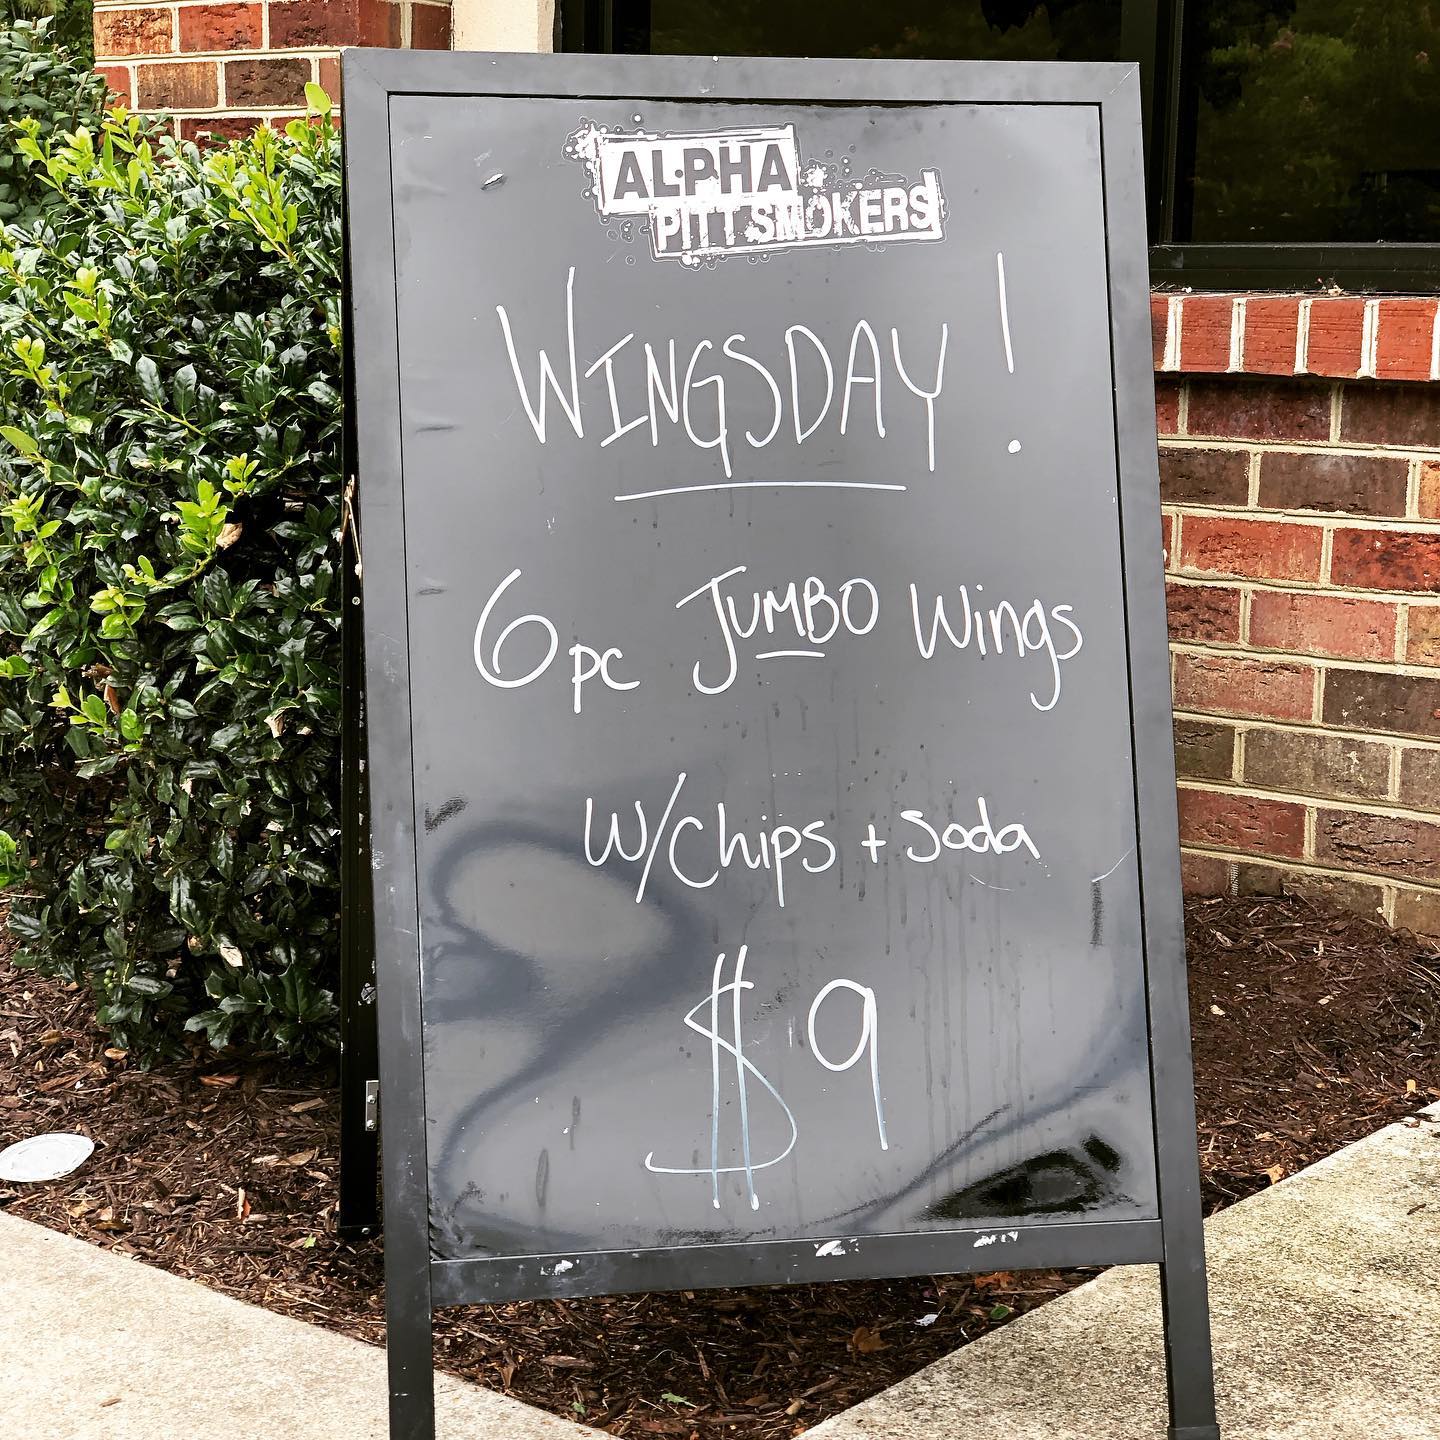 ALPHA
PITT SMOKERS
WINGSDAY!
6pc JUMBO Wings
W/Chips + Soda
$9